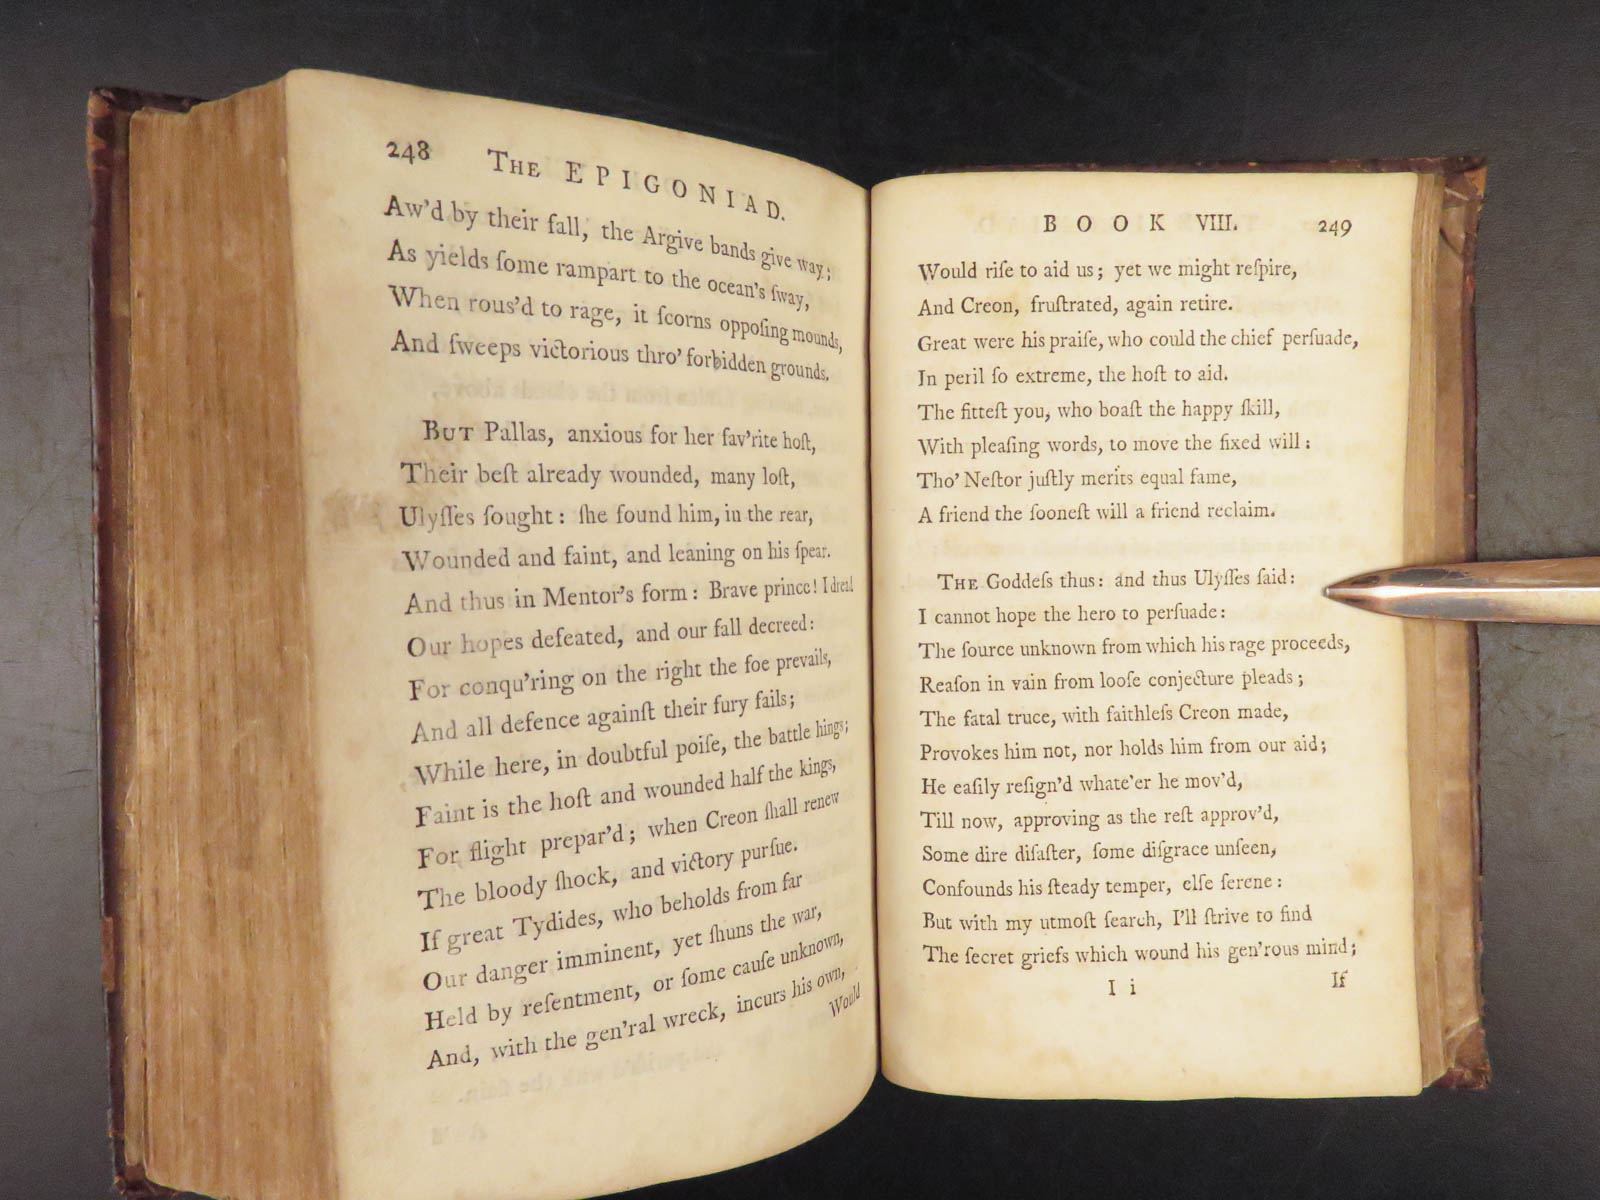 248 THE EPIGONIAD.
Aw'd by their fall, the Argive bands give way;
As yields ſome rampart to the ocean's ſway,
When rous'd to rage, it ſcorns oppoſing mounds,
And ſweeps victorious thro' forbidden grounds.
BUT Pallas, anxious for her fav'rite hoſt,
Their beſt already wounded, many loſt,
Ulyſſes ſought: ſhe found him, in the rear,
Wounded and faint, and leaning on his ſpear.
And thus in Mentor's form: Brave prince! I dread
Our hopes defeated, and our fall decreed:
For conqu'ring on the right the foe prevails,
And all defence againſt their fury fails;
While here, in doubtful poiſe, the battle hings;
Faint is the hoſt and wounded half the kings,
For flight prepar'd; when Creon ſhall renew
The bloody ſhock, and victory purſue.
If great Tydides, who beholds from far
Our danger imminent, yet ſhuns the war,
Held by reſentment, or ſome cauſe unknown,
And, with the gen'ral wreck, incurs his own,
Would
BOOK VIII. 249
Would riſe to aid us; yet we might reſpire,
And Creon, fruſtrated, again retire.
Great were his praiſe, who could the chief perſuade,
In peril ſo extreme, the hoſt to aid.
The fitteſt you, who boaſt the happy ſkill,
With pleaſing words, to move the fixed will:
Tho' Neſtor juſtly merits equal fame,
A friend the ſooneſt will a friend reclaim.
THE Goddeſs thus: and thus Ulyſſes ſaid:
I cannot hope the hero to perſuade:
The ſource unknown from which his rage proceeds,
Reaſon in vain from looſe conjecture pleads;
The fatal truce, with faithleſs Creon made,
Provokes him not, nor holds him from our aid;
He eaſily reſign'd whate'er he mov'd,
Till now, approving as the reſt approv'd,
Some dire diſaſter, ſome diſgrace unſeen,
Confounds his ſteady temper, elſe ſerene:
But with my utmoſt ſearch, I'll ſtrive to find
The ſecret griefs which wound his gen'rous mind;
I i
If